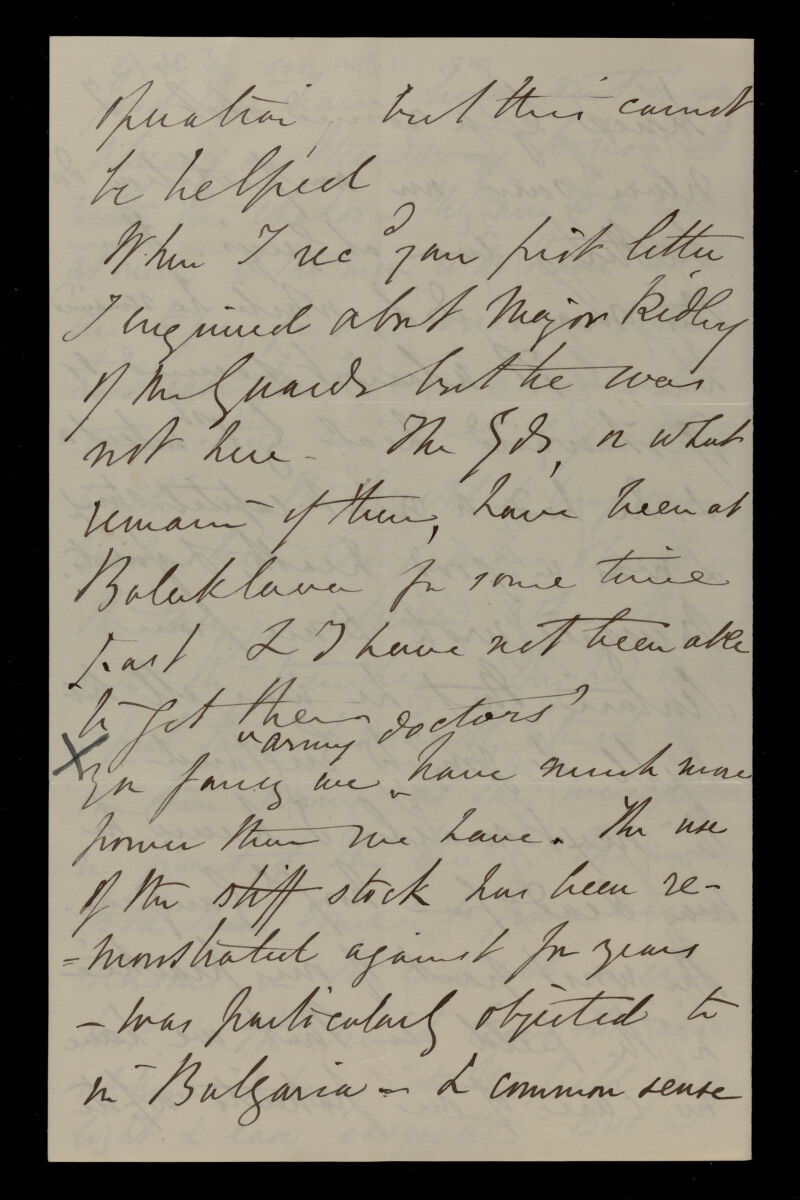 operation, but this cannot
be helped
When I rec^d your first letter
I enquired about Major Ridley
of the Guards but he was
not here - The Gds, or what
remain of them, have been at
Balaklava for some time
past & I have not been able
to get there
"army doctors"
You fancy we have much more
power than we have. The use
of the stiff stock has been re-
=monstrated against for years
- was particularly objected to
in Bulgaria - & common sense